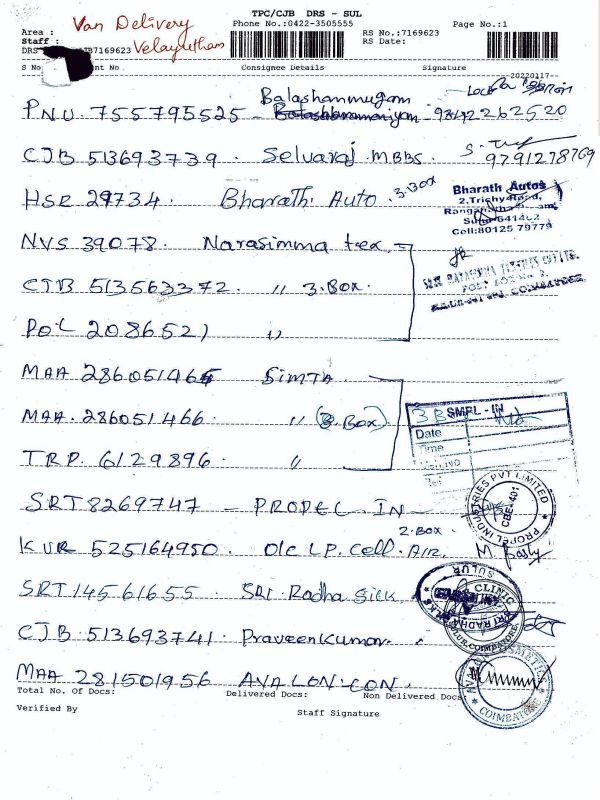 TPC/CJB DRS - SUL
Van Delivery
Phone No.:0422-3505555
Page No.:1
Area :
RS No.:7169623
Staff : Velayutham
RS Date:
DRS JB7169623
S No nt No Consignee Details Signature
20220117--
Balashanmugam
PNU. 755795525 - 9842262520
CJB 513693739. Selvaraj MBBS. 9791278709
HSR 29734. Bharath Auto. 3.Box
Bharath Autos
2.Trichy Road,
Sulur-641402
Cell:80125 79779
NVS 39078. Narasimma tex.
CJB 513563372 " 3.Box.
POL 2086521 "
MAA 286051465 SIMTA.
MAA. 286051466 " (3.Box)
TRP. 6129896 "
3 B SMPL - IN
Date
Time
SRT 8269747 - PROPEL - IN
PROPEL INDUSTRIES PVT LIMITED
CBE-401
2.Box.
KUR 525164950. Olc LP. Cell. AIR.
SRT 14561655 SRI. Radha Sick
CLINIC
SRI RADHA
SULUR, COIMBATORE
CJB. 513693741. Praveenkumar.
MAA 281501956 AVALON-CON.
COIMBATORE
Total No. Of Docs: Delivered Docs: Non Delivered Docs
Verified By Staff Signature